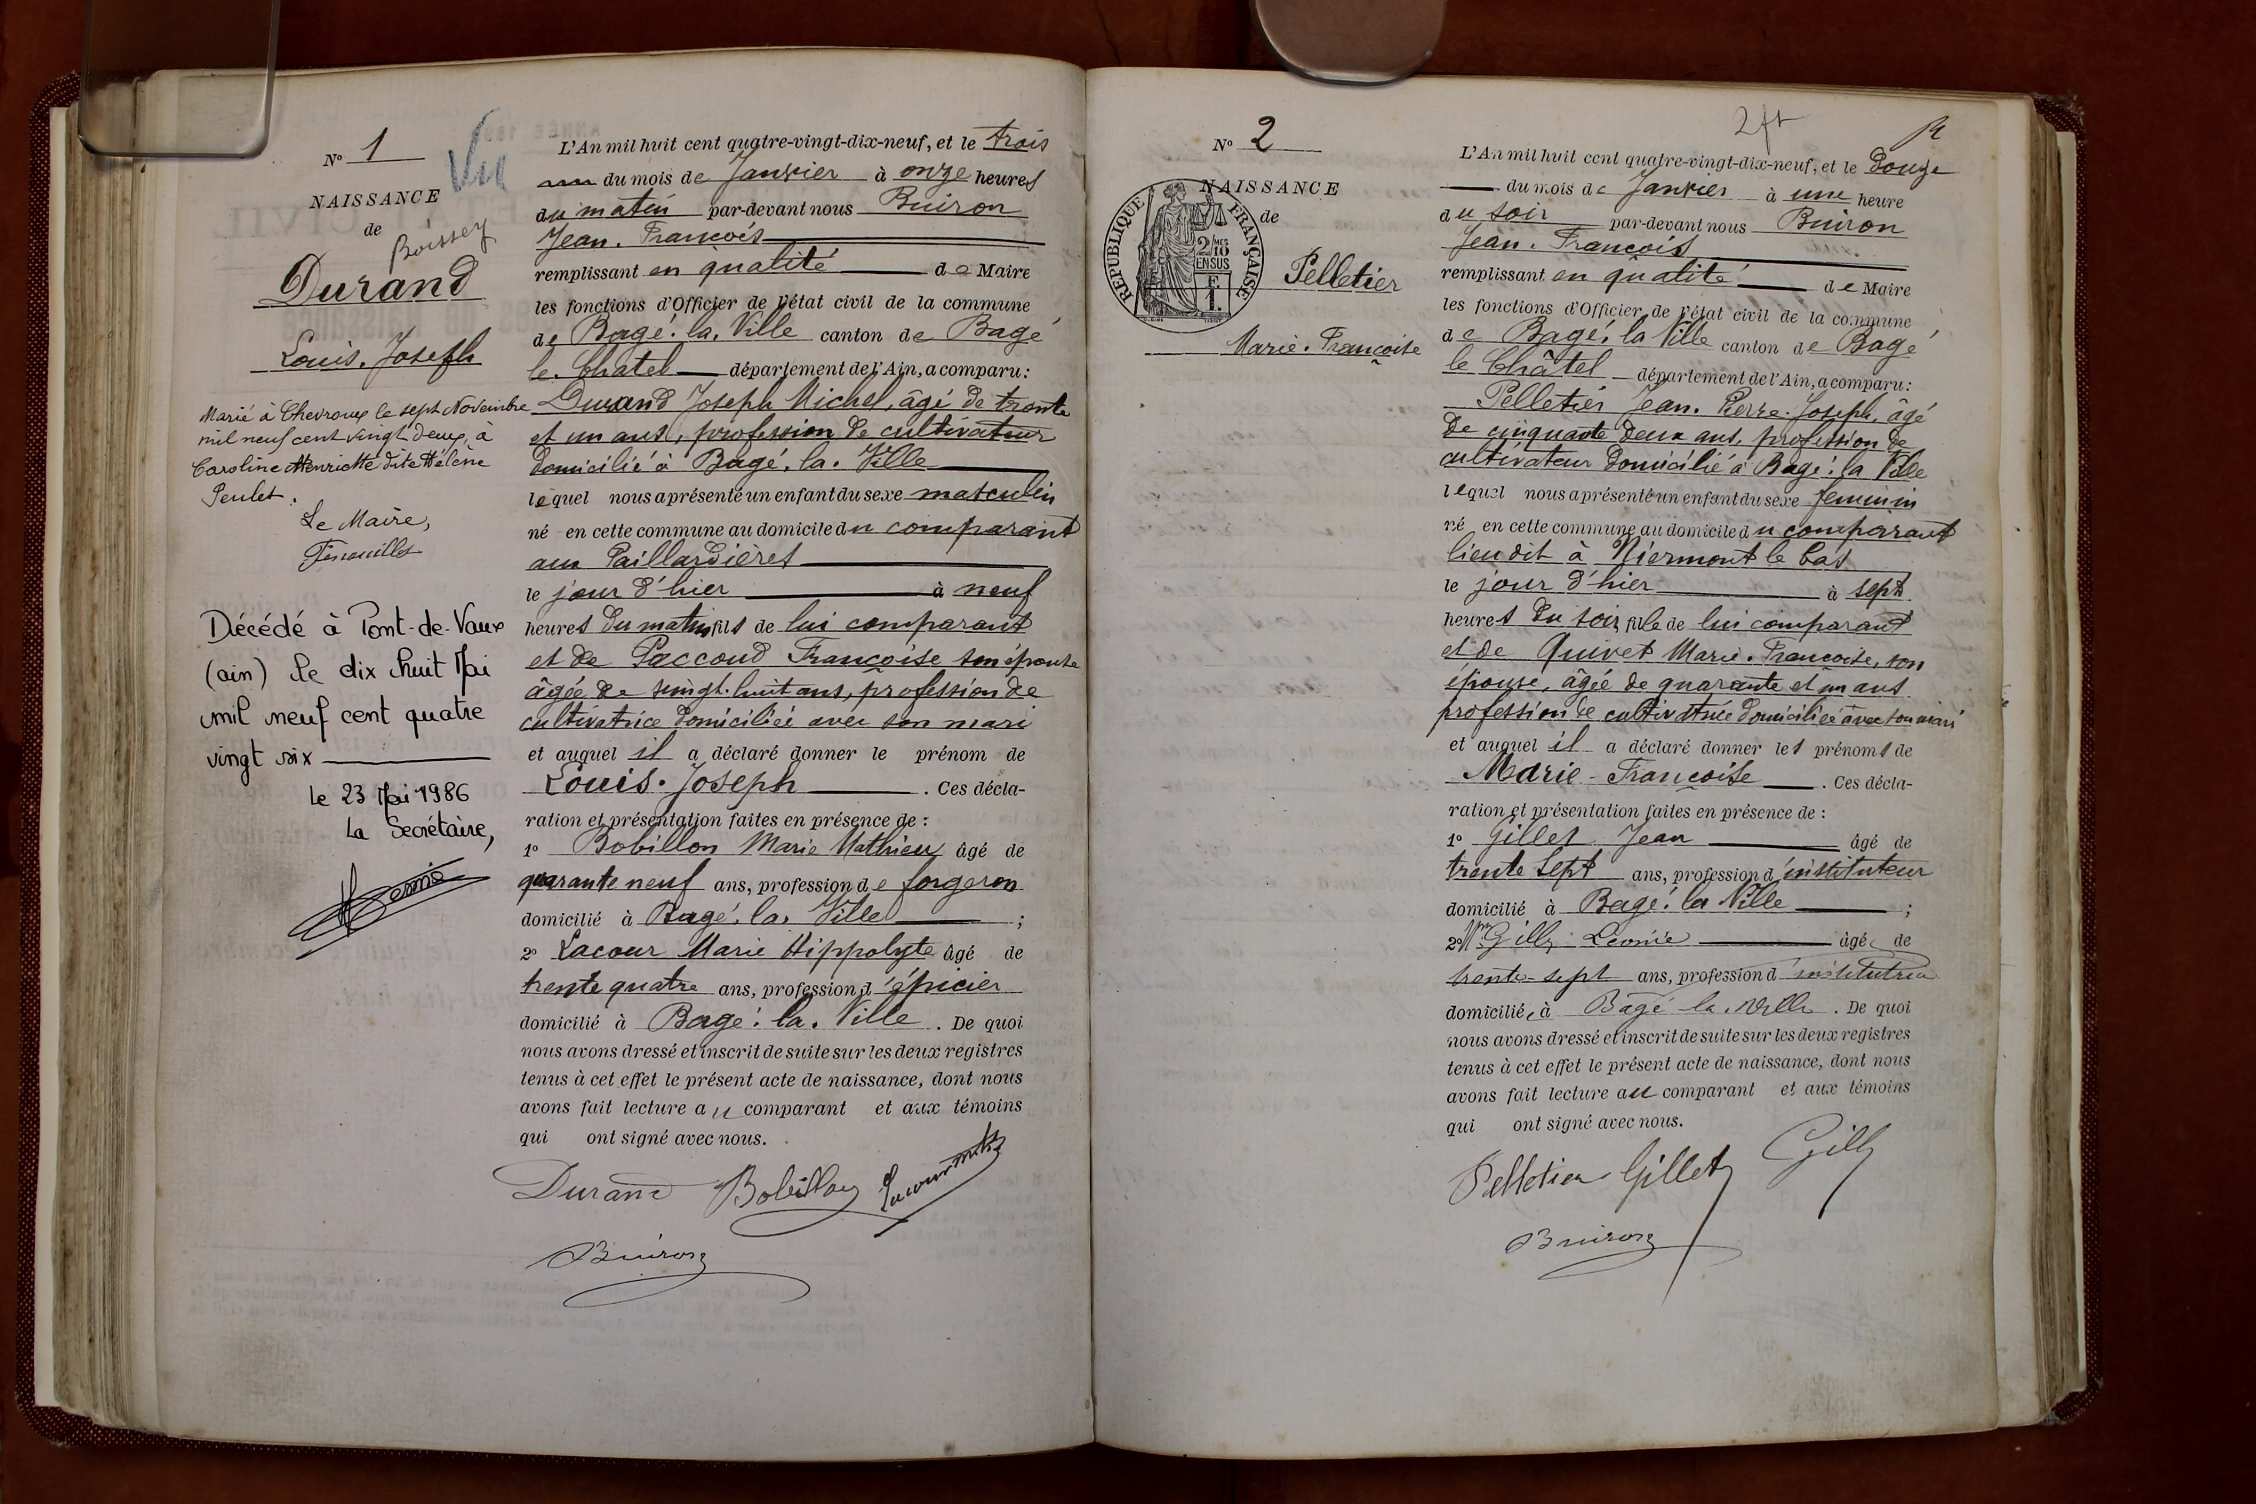 N° 1
Vu
NAISSANCE
de
Boissey
Durand
Louis. Joseph
Marié à Chevroux le sept Novembre
mil neuf cent vingt deux, à
Caroline Henriette dite Hélène
Peulet.
Le Maire,
Décédé à Pont-de-Vaux
(ain) le dix huit Mai
mil neuf cent quatre
vingt six
Le 23 Mai 1986
La Secrétaire,
L'An mil huit cent quatre-vingt-dix-neuf, et le trois
du mois de Janvier à onze heures
du matin par-devant nous Buiron
Jean. François
remplissant en qualité de Maire
les fonctions d'Officier de l'état civil de la commune
de Bagé. la. Ville canton de Bagé
le. Chatel département de l'Ain, a comparu:
Durand Joseph Michel, âgé de trente
et un ans, profession de cultivateur
domicilié à Bagé. la. Ville
lequel nous a présenté un enfant du sexe masculin
né en cette commune au domicile du comparant
aux Paillardières
le jour d'hier à neuf
heures du matin fils de lui comparant
et de Paccoud Françoise son épouse
âgée de vingt. huit ans, profession de
cultivatrice domiciliée avec son mari
et auquel il a déclaré donner le prénom de
Louis. Joseph . Ces décla-
ration et présentation faites en présence de :
1° Bobillon Marie Mathieu âgé de
quarante neuf ans, profession de forgeron
domicilié à Bagé. la. Ville ;
2° Lacour Marie Hippolyte âgé de
trente quatre ans, profession d'épicier
domicilié à Bagé. la. Ville . De quoi
nous avons dressé et inscrit de suite sur les deux registres
tenus à cet effet le présent acte de naissance, dont nous
avons fait lecture au comparant et aux témoins
qui ont signé avec nous.
Durand Bobillon Lacour
Buiron
N° 2
NAISSANCE
de
RÉPUBLIQUE FRANÇAISE
2/10 MES
EN SUS
Pelletier
Marie. Françoise
2ft
L'An mil huit cent quatre-vingt-dix-neuf, et le douze
du mois de Janvier à une heure
du soir par-devant nous Buiron
Jean. François
remplissant en qualité de Maire
les fonctions d'Officier de l'état civil de la commune
de Bagé. la Ville canton de Bagé
le Châtel département de l'Ain, a comparu:
Pelletier Jean. Pierre. Joseph, âgé
de cinquante deux ans, profession de
cultivateur domicilié à Bagé. la Ville
lequel nous a présenté un enfant du sexe féminin
né en cette commune au domicile du comparant
lieu dit à Niermont le bas
le jour d'hier à sept
heures du soir, fille de lui comparant
et de Quivet Marie. Françoise, son
épouse, âgée de quarante et un ans
profession de cultivatrice domiciliée avec son mari
et auquel il a déclaré donner les prénoms de
Marie - Françoise . Ces décla-
ration et présentation faites en présence de :
1° Gillet Jean âgé de
trente sept ans, profession d'instituteur
domicilié à Bagé. la Ville ;
2° Gilly Léonie âgée de
trente-sept ans, profession d'institutrice
domiciliée à Bagé la Ville . De quoi
nous avons dressé et inscrit de suite sur les deux registres
tenus à cet effet le présent acte de naissance, dont nous
avons fait lecture au comparant et aux témoins
qui ont signé avec nous.
Pelletier Gillet Gilly
Buiron